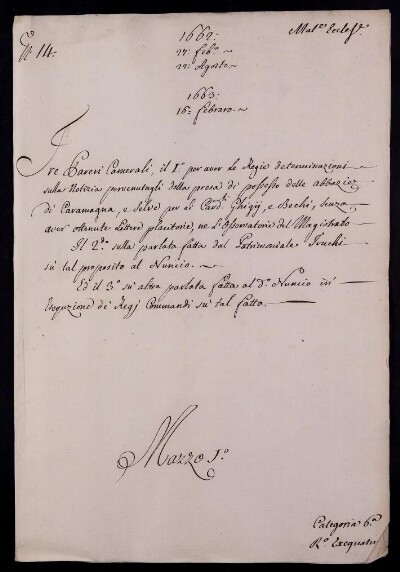 N.º 14:
1662:
27: Feb.º ~
22: Agosto. ~
Mat.e Eccles.e
1663:
16: Febraro. ~
Tre Pareri Camerali, il 1.º per aver le Regie determinazioni
sulla Notizia pervenutagli della presa di possesso delle abbazie
di Caramagna, e Selve per li Card.li Ghiggi, e Bechi, senza
aver ottenute Littere placitorie, ne l'Osservatorie del Magistrato
Il 2.do sulla parlata fatta dal Patrimoniale Truchi
su tal proposito al Nuncio. ~
Ed il 3.º su altra parlata fatta al d.º Nuncio in
Esecuzione de' Regj Commandi su tal fatto.
Mazzo 1.º
Categoria 6.a
R.º Exequatur